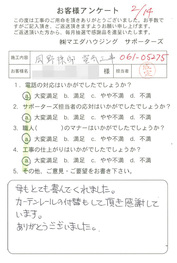 お客様アンケート
2/14
この度は工事のご用命を頂きありがとうございました。お手数で
すがご記入頂き、ご返送頂きますようお願い申し上げます。
ご返送頂いた方から、毎月抽選で感謝品を進呈いたします。
㈱マエダハウジング サポーターズ
工事名
061-05275
お客様名
様
担当者
1. 電話の対応はいかがでしたでしょうか?
a 大変満足 b. 満足 c. やや不満 d. 不満
2. サポーターズ担当者の対応はいかがでしたでしょうか?
a 大変満足 b. 満足 c. やや不満 d. 不満
3. 職人( )のマナーはいかがでしたでしょうか?
a 大変満足 b. 満足 c. やや不満 d. 不満
4. 工事の仕上がりはいかがでしたでしょうか?
a 大変満足 b. 満足 c. やや不満 d. 不満
5. その他、ご意見・ご要望をお書き下さい。
母もとても喜んでくれました。
カーテンレールの付替もして頂き感謝して
います。
ありがとうございました。